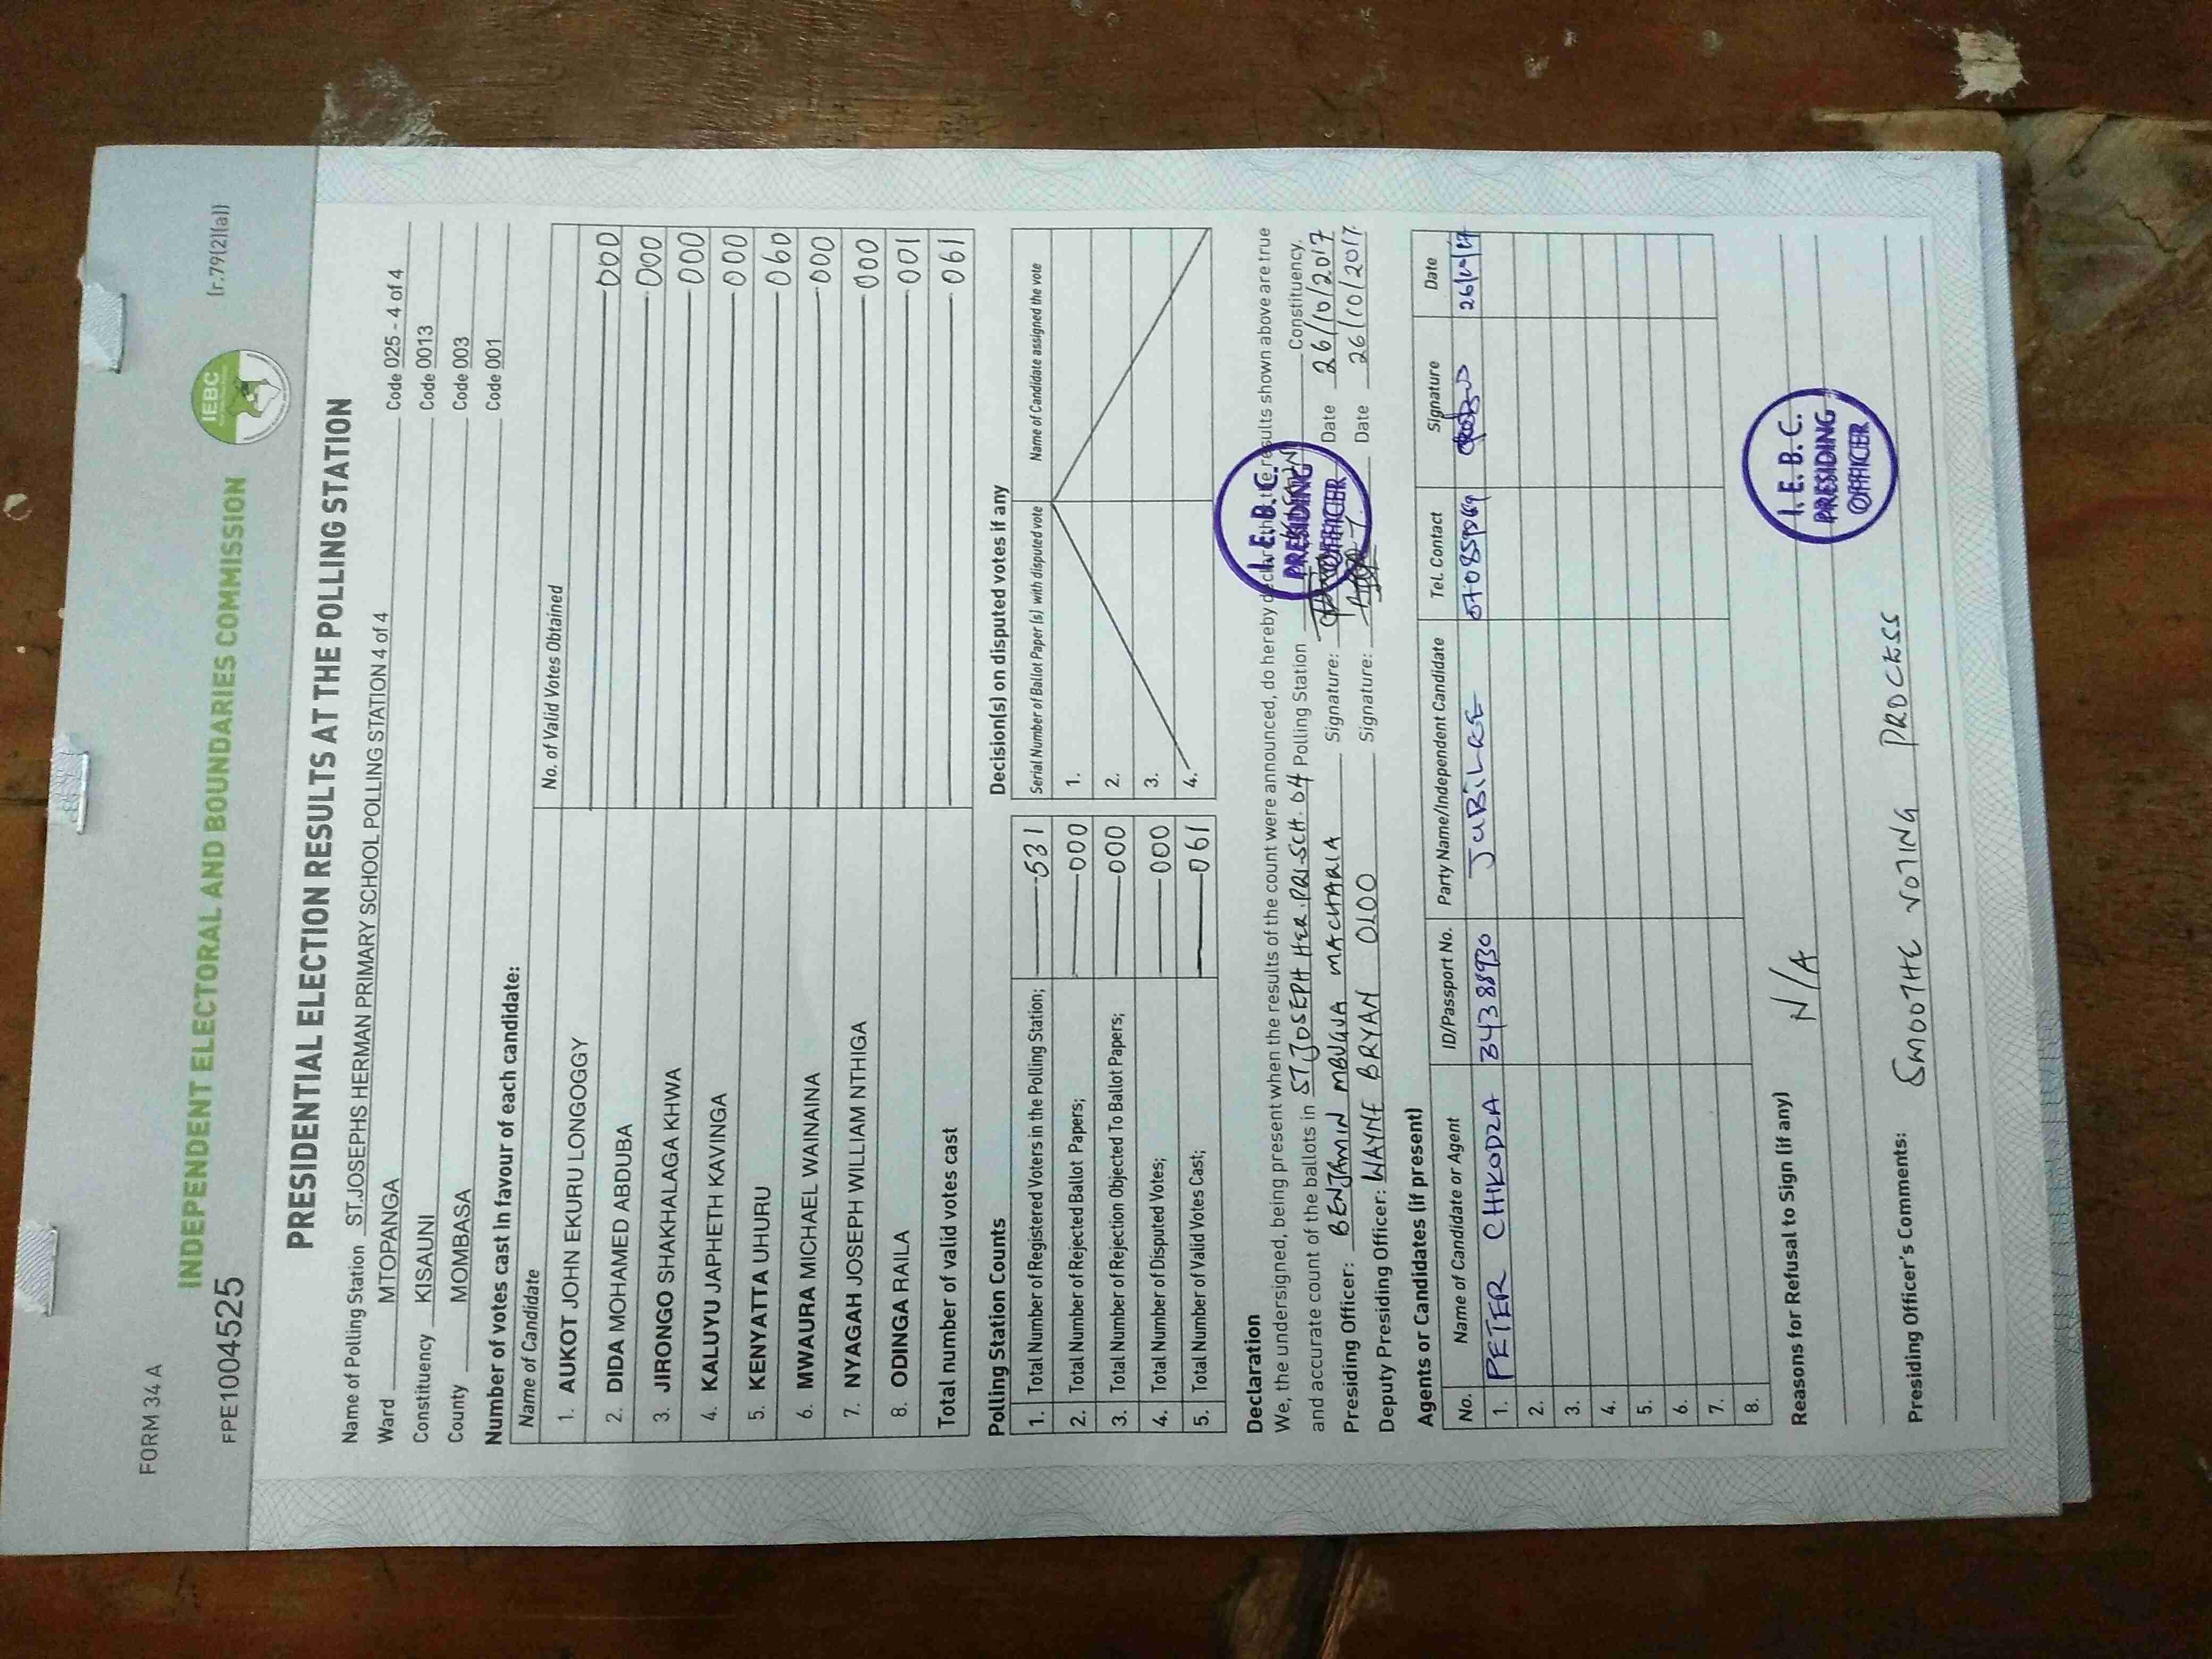 FORM 34 A
INDEPENDENT ELECTORAL AND BOUNDARIES COMMISSION
IEBC
(r.79(2)(a))
FPE1004525
PRESIDENTIAL ELECTION RESULTS AT THE POLLING STATION
Name of Polling Station ST.JOSEPHS HERMAN PRIMARY SCHOOL POLLING STATION 4 of 4
Ward MTOPANGA Code 025 - 4 of 4
Constituency KISAUNI Code 0013
County MOMBASA Code 003
Code 001
Number of votes cast in favour of each candidate:
Name of Candidate No. of Valid Votes Obtained
1. AUKOT JOHN EKURU LONGOGGY 000
2. DIDA MOHAMED ABDUBA 000
3. JIRONGO SHAKHALAGA KHWA 000
4. KALUYU JAPHETH KAVINGA 000
5. KENYATTA UHURU 060
6. MWAURA MICHAEL WAINAINA 000
7. NYAGAH JOSEPH WILLIAM NTHIGA 000
8. ODINGA RAILA 001
Total number of valid votes cast 061
Polling Station Counts
1. Total Number of Registered Voters in the Polling Station; 531
2. Total Number of Rejected Ballot Papers; 000
3. Total Number of Rejection Objected To Ballot Papers; 000
4. Total Number of Disputed Votes; 000
5. Total Number of Valid Votes Cast; 061
Decision(s) on disputed votes if any
Serial Number of Ballot Paper (s) with disputed vote Name of Candidate assigned the vote
1.
2.
3.
4.
Declaration
We, the undersigned, being present when the results of the count were announced, do hereby declare that the results shown above are true
and accurate count of the ballots in ST JOSEPH HER.PRI-SCH. 04 Polling Station Constituency.
Presiding Officer: BENJAMIN MBUGUA MACHARIA Signature: Date 26/10/2017
Deputy Presiding Officer: WAYNE BRYAN OLOO Signature: Date 26/10/2017
I.E.B.C.
PRESIDING
OFFICER
Agents or Candidates (if present)
No. Name of Candidate or Agent ID/Passport No. Party Name/Independent Candidate Tel. Contact Signature Date
1. PETER CHIKODZA 34388930 JUBILREE 26/10/17
2.
3.
4.
5.
6.
7.
8.
Reasons for Refusal to Sign (if any)
N/A
I.E.B.C.
PRESIDING
OFFICER
Presiding Officer's Comments: SMOOTHE VOTING PROCESS